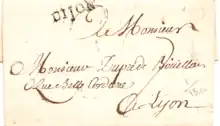 DIJON
A Monsieur
Monsieur Dupré de
Rue Belle Cordiere
A Lyon